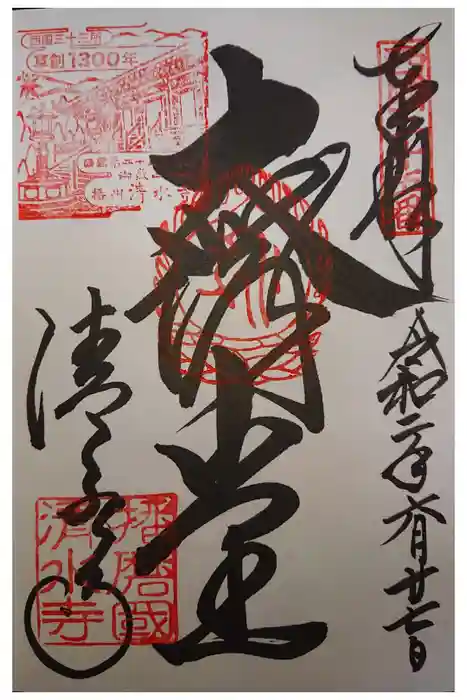 奉拝
令和二年六月廿七日
大講堂
清水寺
西国三十三所
草創1300年
西国第二十五番
播州清水寺
播磨國
清水寺